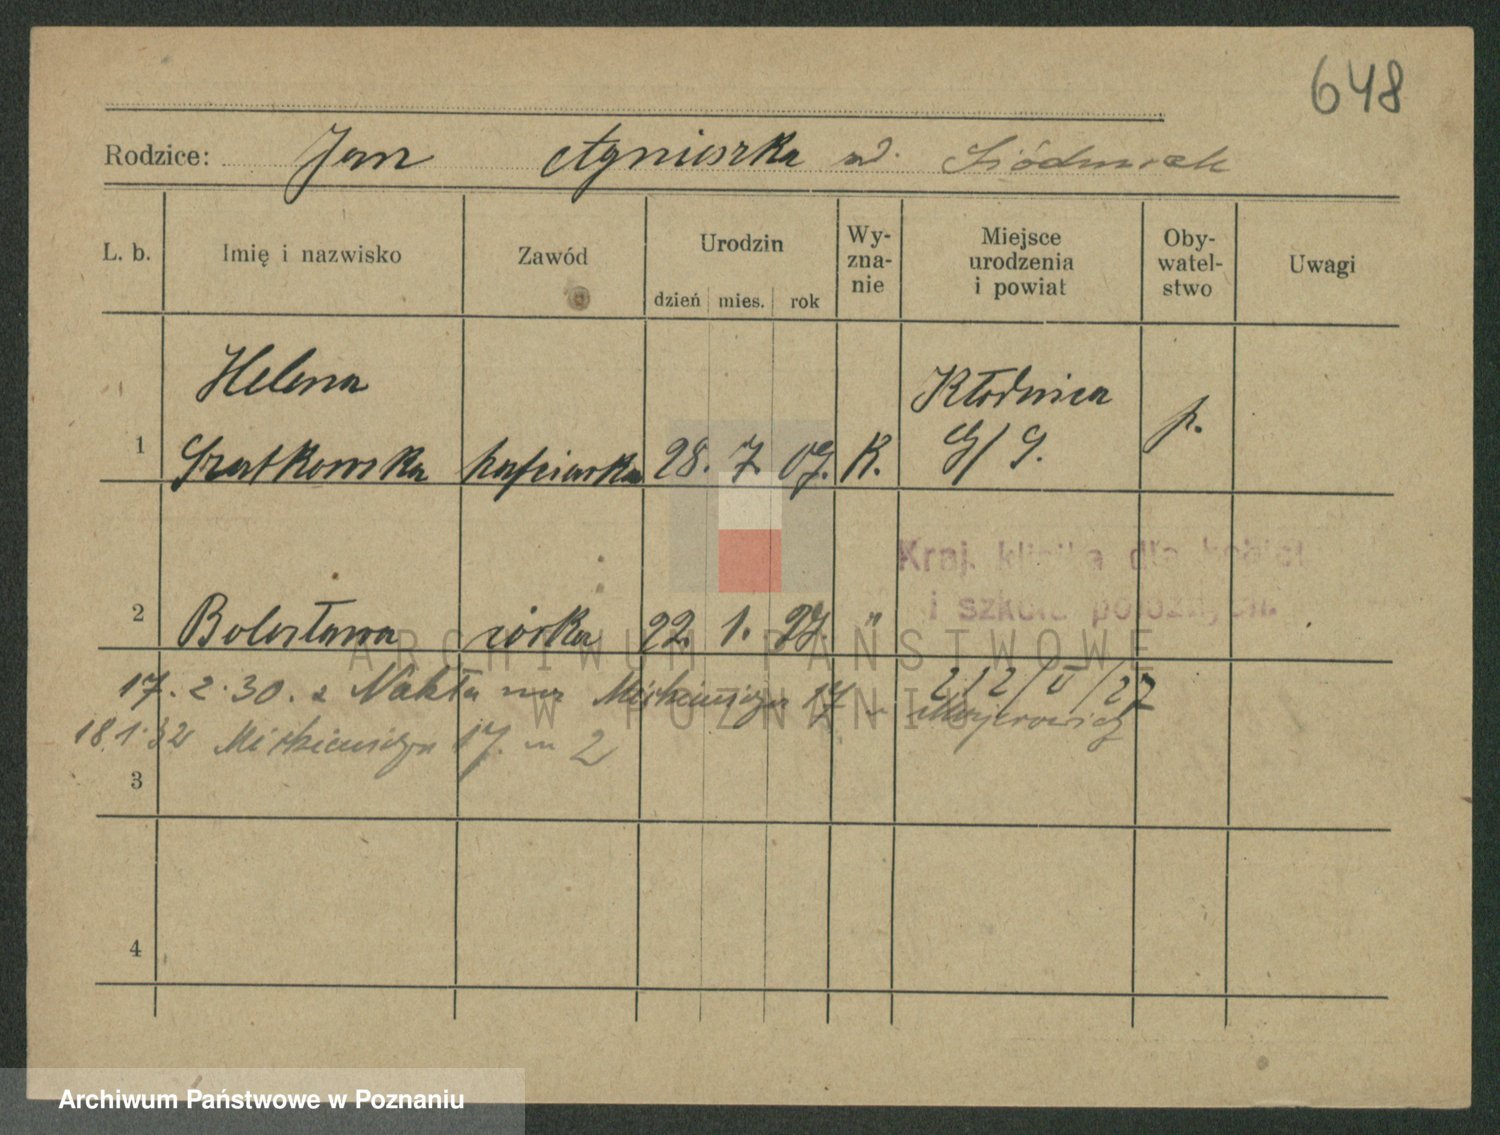 648
Rodzice: Jan Agnieszka z d. Siódmiak
L. b.
Imię i nazwisko
Zawód
Urodzin
dzień mies. rok
Wy-
zna-
nie
Miejsce
urodzenia
i powiat
Oby-
watel-
stwo
Uwagi
Helena
Kłodnica
1 Szatkowska hafciarka 28. 7. 07. K. G/S. p.
Kraj. klinika dla kobiet
i szkoła położnych
2 Bolesława córka 22. 1. 27. "
17. 2. 30. z Nakła Mickiewicza 17 2/2/27
18.1.32 Mickiewicza 17. m 2
3
4
ARCHIWUM PAŃSTWOWE
W POZNANIU
Archiwum Państwowe w Poznaniu